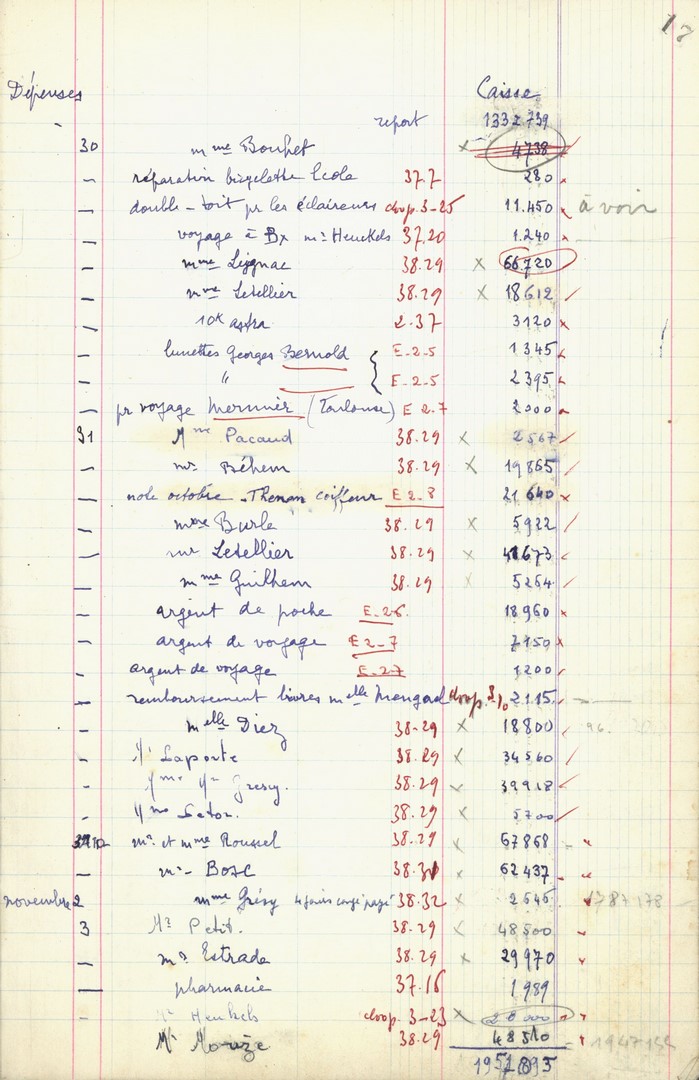 Dépenses Caisse
report 1332739
30 mme Bouhet × 4738
— réparation bicyclette Ecole 37.7 280
— double-toit pr les éclaireurs coop. 3-25 11.450 à voir
— voyage à Bx mr Henckels 37.20 1.240
— mme Legnac 38.29 × 66.720
— mme Letellier 38.29 × 18612
— 10k astra 2.37 3120
— lunettes Georges Bernold { E-2-5 1345
— " E-2-5 2395
— pr voyage Mermier (Toulouse) E 2.7 2000
31 Mme Pacaud 38.29 × 2567
— mr Béhem 38.29 × 19865
— note octobre - Thenon coiffeur E 2-8 21640
— mme Burle 38.29 × 5922
— mr Letellier 38.29 × 48673
— mme Guilhem 38.29 × 5264
— argent de poche E-26. 18960
— argent de voyage E 2-7 7150
— argent de voyage E-27 1200
— remboursement livres melle Mongard coop. 3,10 2115
— melle Diez 38-29 × 18800 96.
- Mr Laporte 38.29 × 34560
- Mme Mr Gresy. 38.29 × 39918
- Mme Setor. 38.29 × 5700
mr et mme Roussel 38.29 × 67868
— mr Bosc 38.31 × 62437
novembre 2 mme Grésy 4 jours congé payé 38.32 × 2646 1387178
3 Mr Petit. 38.29 × 48500
— mr Estrade 38.29 × 29970
— pharmacie 37.16 1989
- Mr Henkels coop. 3-23 × 20000
- Mr Morize 38.29 48510
1951893